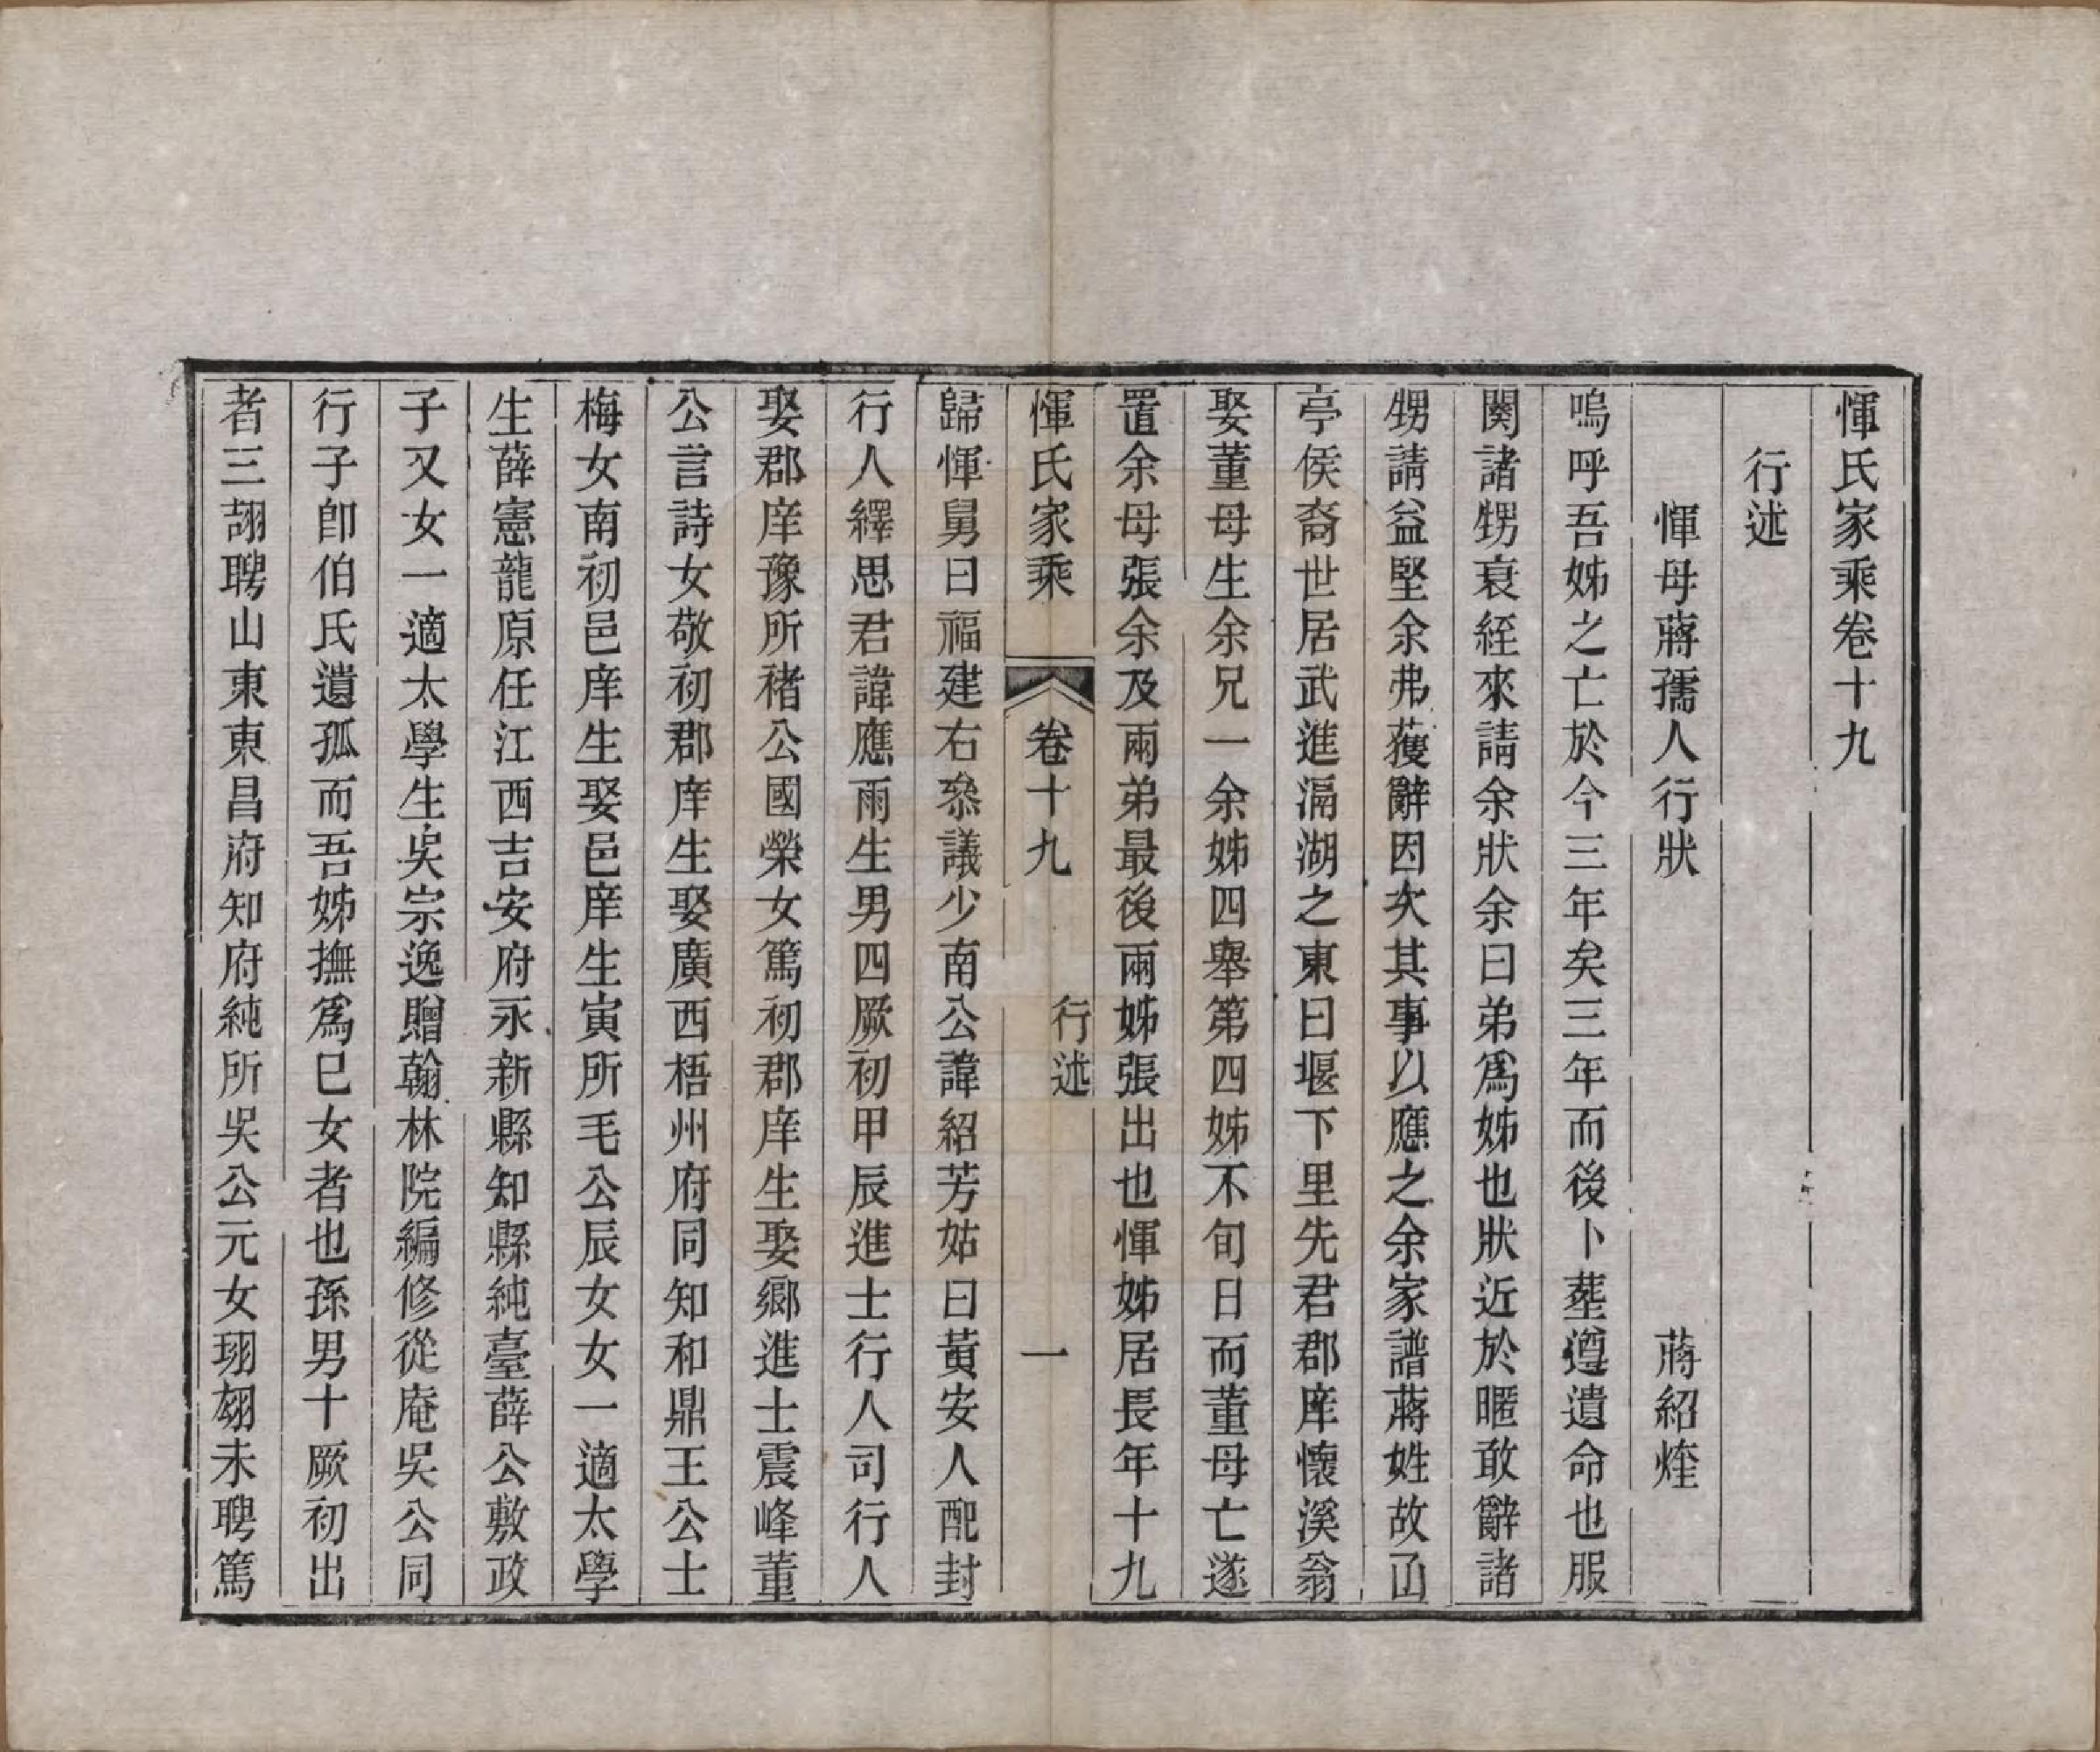 惲氏家乘卷十九
行述
惲母蔣孺人行狀　蔣紹煃
嗚呼吾姊之亡於今三年矣三年而後卜葬遵遺命也服
闋諸甥衰絰來請余狀余曰弟爲姊也狀近於暱敢辭諸
甥請益堅余弗獲辭因次其事以應之余家譜蔣姓故䢴
亭侯裔世居武進滆湖之東曰堰下里先君郡庠懷溪翁
娶董母生余兄一余姊四舉第四姊不旬日而董母亡遂
置余母張余及兩弟最後兩姊張出也惲姊居長年十九
惲氏家乘　卷十九　行述　一
歸惲舅曰福建右叅議少南公諱紹芳姑曰黃安人配封
行人繹思君諱應雨生男四厥初甲辰進士行人司行人
娶郡庠豫所褚公國榮女篤初郡庠生娶鄉進士震峰董
公言詩女敬初郡庠生娶廣西梧州府同知和鼎王公士
梅女南初邑庠生娶邑庠生寅所毛公辰女女一適太學
生薛憲龍原任江西吉安府永新縣知縣純臺薛公敷政
子又女一適太學生吳宗逸贈翰林院編修從庵吳公同
行子卽伯氏遺孤而吾姊撫爲巳女者也孫男十厥初出
者三翃聘山東東昌府知府純所吳公元女珝翃未聘篤